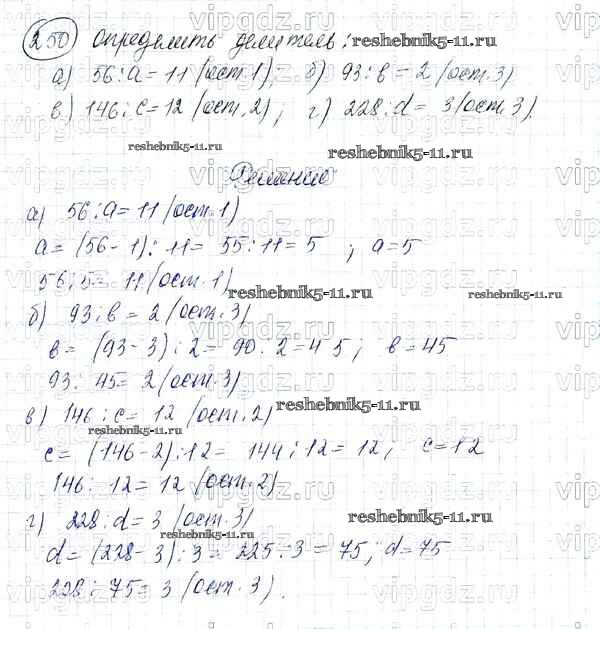 250 Определить делитель:
а) 56 : a = 11 (ост. 1); б) 93 : в = 2 (ост. 3)
в) 146 : c = 12 (ост. 2); г) 228 : d = 3 (ост. 3).
Решение
а) 56 : a = 11 (ост. 1)
a = (56 - 1) : 11 = 55 : 11 = 5 ; a = 5
56 : 5 = 11 (ост. 1)
б) 93 : в = 2 (ост. 3)
в = (93 - 3) : 2 = 90 : 2 = 45 ; в = 45
93 : 45 = 2 (ост. 3)
в) 146 : c = 12 (ост. 2)
c = (146 - 2) : 12 = 144 : 12 = 12, c = 12
146 : 12 = 12 (ост. 2)
г) 228 : d = 3 (ост. 3)
d = (228 - 3) : 3 = 225 : 3 = 75, d = 75
228 : 75 = 3 (ост. 3).
reshebnik5-11.ru
reshebnik5-11.ru
reshebnik5-11.ru
reshebnik5-11.ru
reshebnik5-11.ru
reshebnik5-11.ru
reshebnik5-11.ru
reshebnik5-11.ru
reshebnik5-11.ru
vipgdz.ru